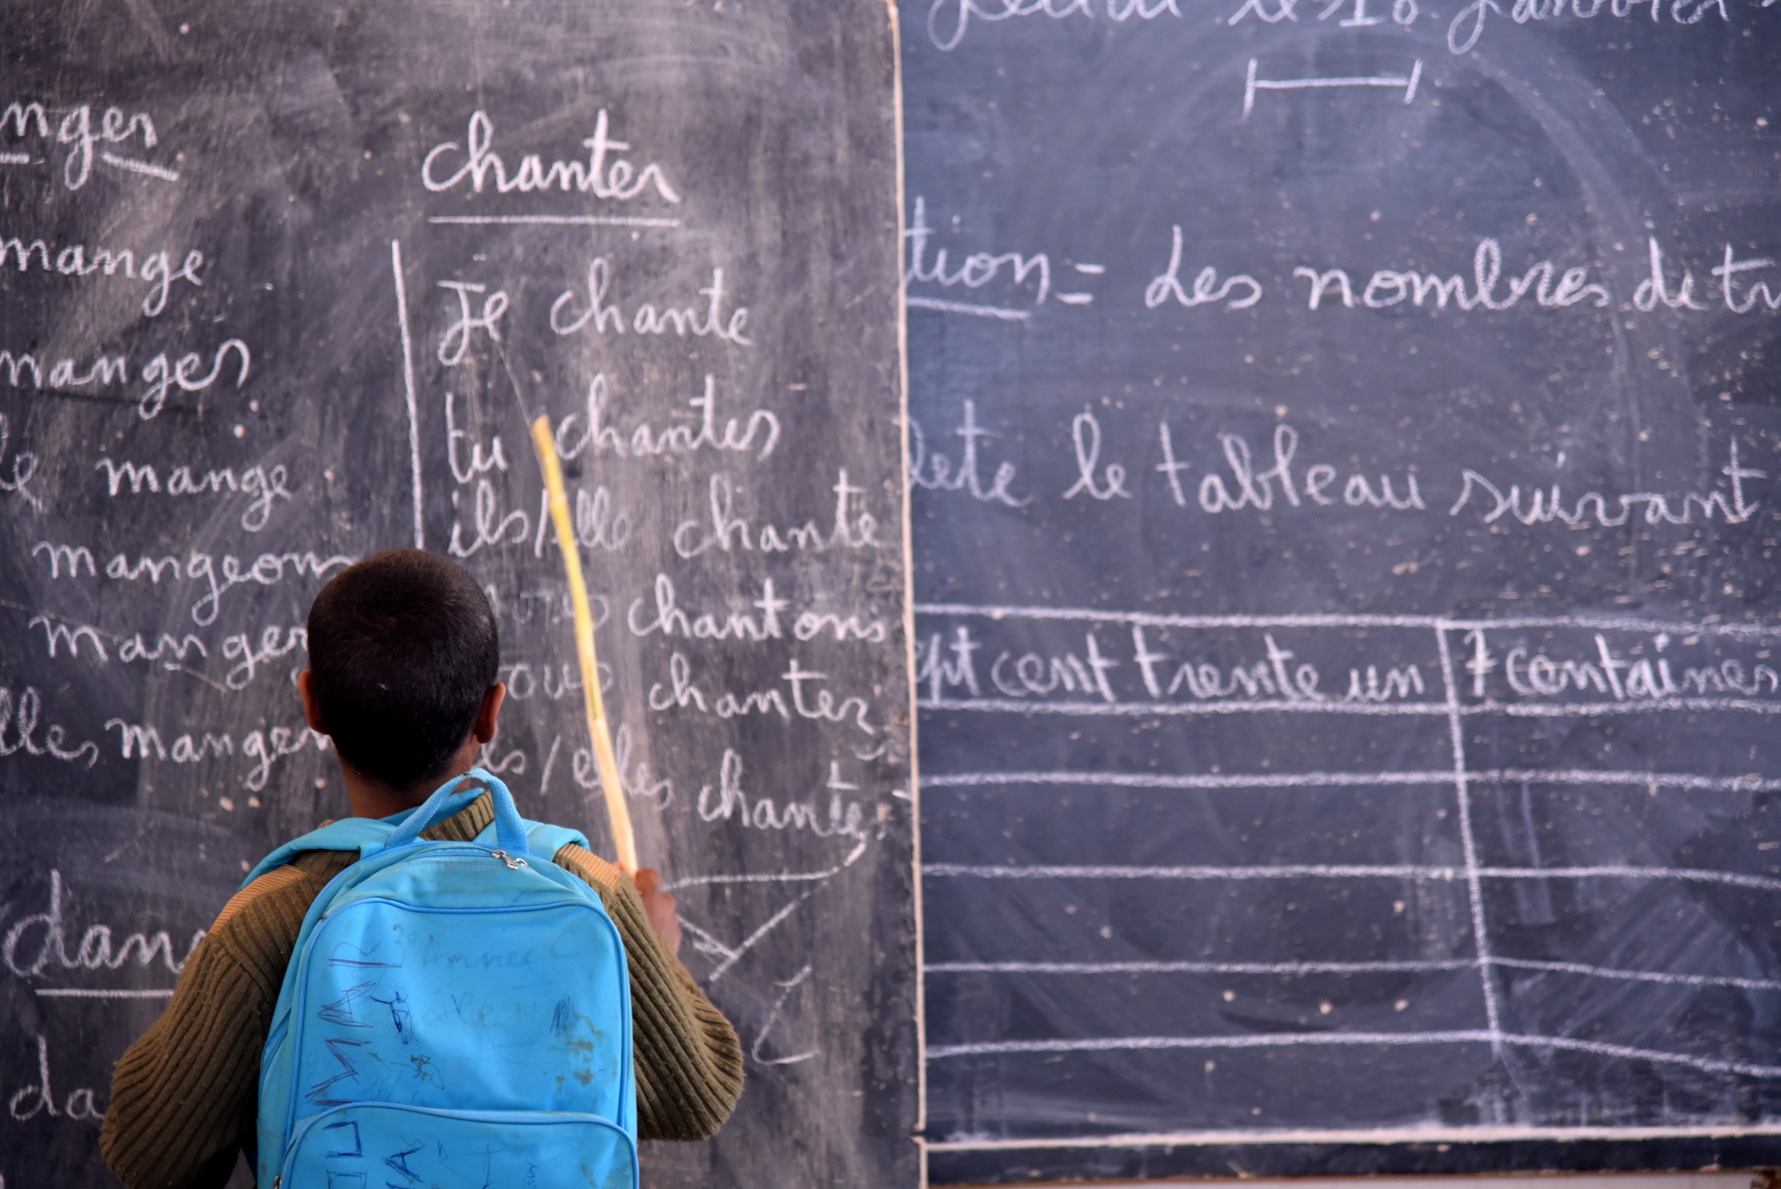 nger
mange
manges
mange
mangeons
manger
lles mangen
dans
da
chanter
Je chante
tu chantes
ils/elle chante
chantons
ous chantez
ls/elles chante
Jeudi le 16 Janvier
tion = Les nombres de tr
lete le tableau suivant
ept cent trente un 7 centaines
MAR